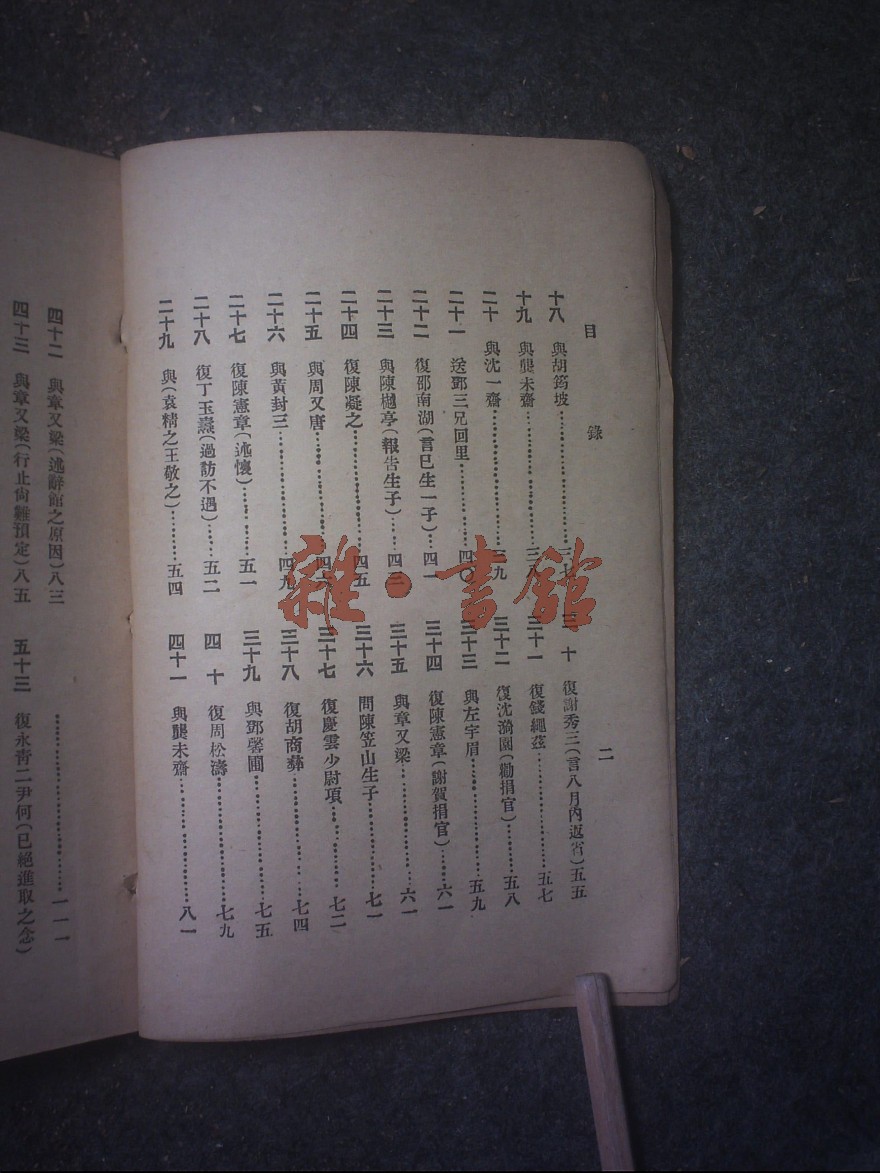 目錄
二
十八 與胡筠坡………………三七
十九 與龔未齋………………三
二十 與沈一齋………………三九
二十一 送鄧三兄回里………四〇
二十二 復邵南湖(言已生一子)…四一
二十三 與陳樾亭(報告生子)……四三
二十四 復陳凝之………………四五
二十五 與周又唐………………四
二十六 與黃封三………………四九
二十七 復陳憲章(述懷)………五一
二十八 復丁玉燾(過訪不遇)……五二
二十九 與(袁精之王敬之)………五四
三十 復謝秀三(言八月內返省)五五
三十一 復錢繩茲………………五七
三十二 復沈漪園(勸捐官)……五八
三十三 與左宇眉………………五九
三十四 復陳憲章(謝賀捐官)…六一
三十五 與章又梁………………六一
三十六 問陳笠山生子…………七一
三十七 復慶雲少尉項…………七二
三十八 復胡商彝………………七四
三十九 與鄧馨圃………………七五
四十 復周松濤………………七九
四十一 與龔未齋………………八一
四十二 與章又梁(述辭館之原因)八三
四十三 與章又梁(行止尙難預定)八五
………………一一一
五十三 復永靑二尹何(已絕進取之念)
雜·書館